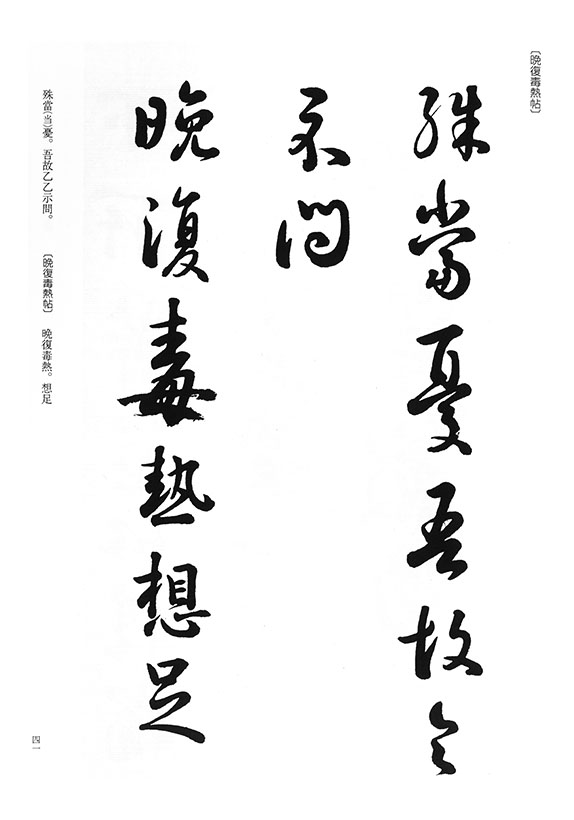 〔晩復毒熱帖〕
殊當憂吾故乙乙
示問
晩復毒熱想足
殊當(当)憂。吾故乙乙示問。　〔晩復毒熱帖〕　晩復毒熱。想足
四一